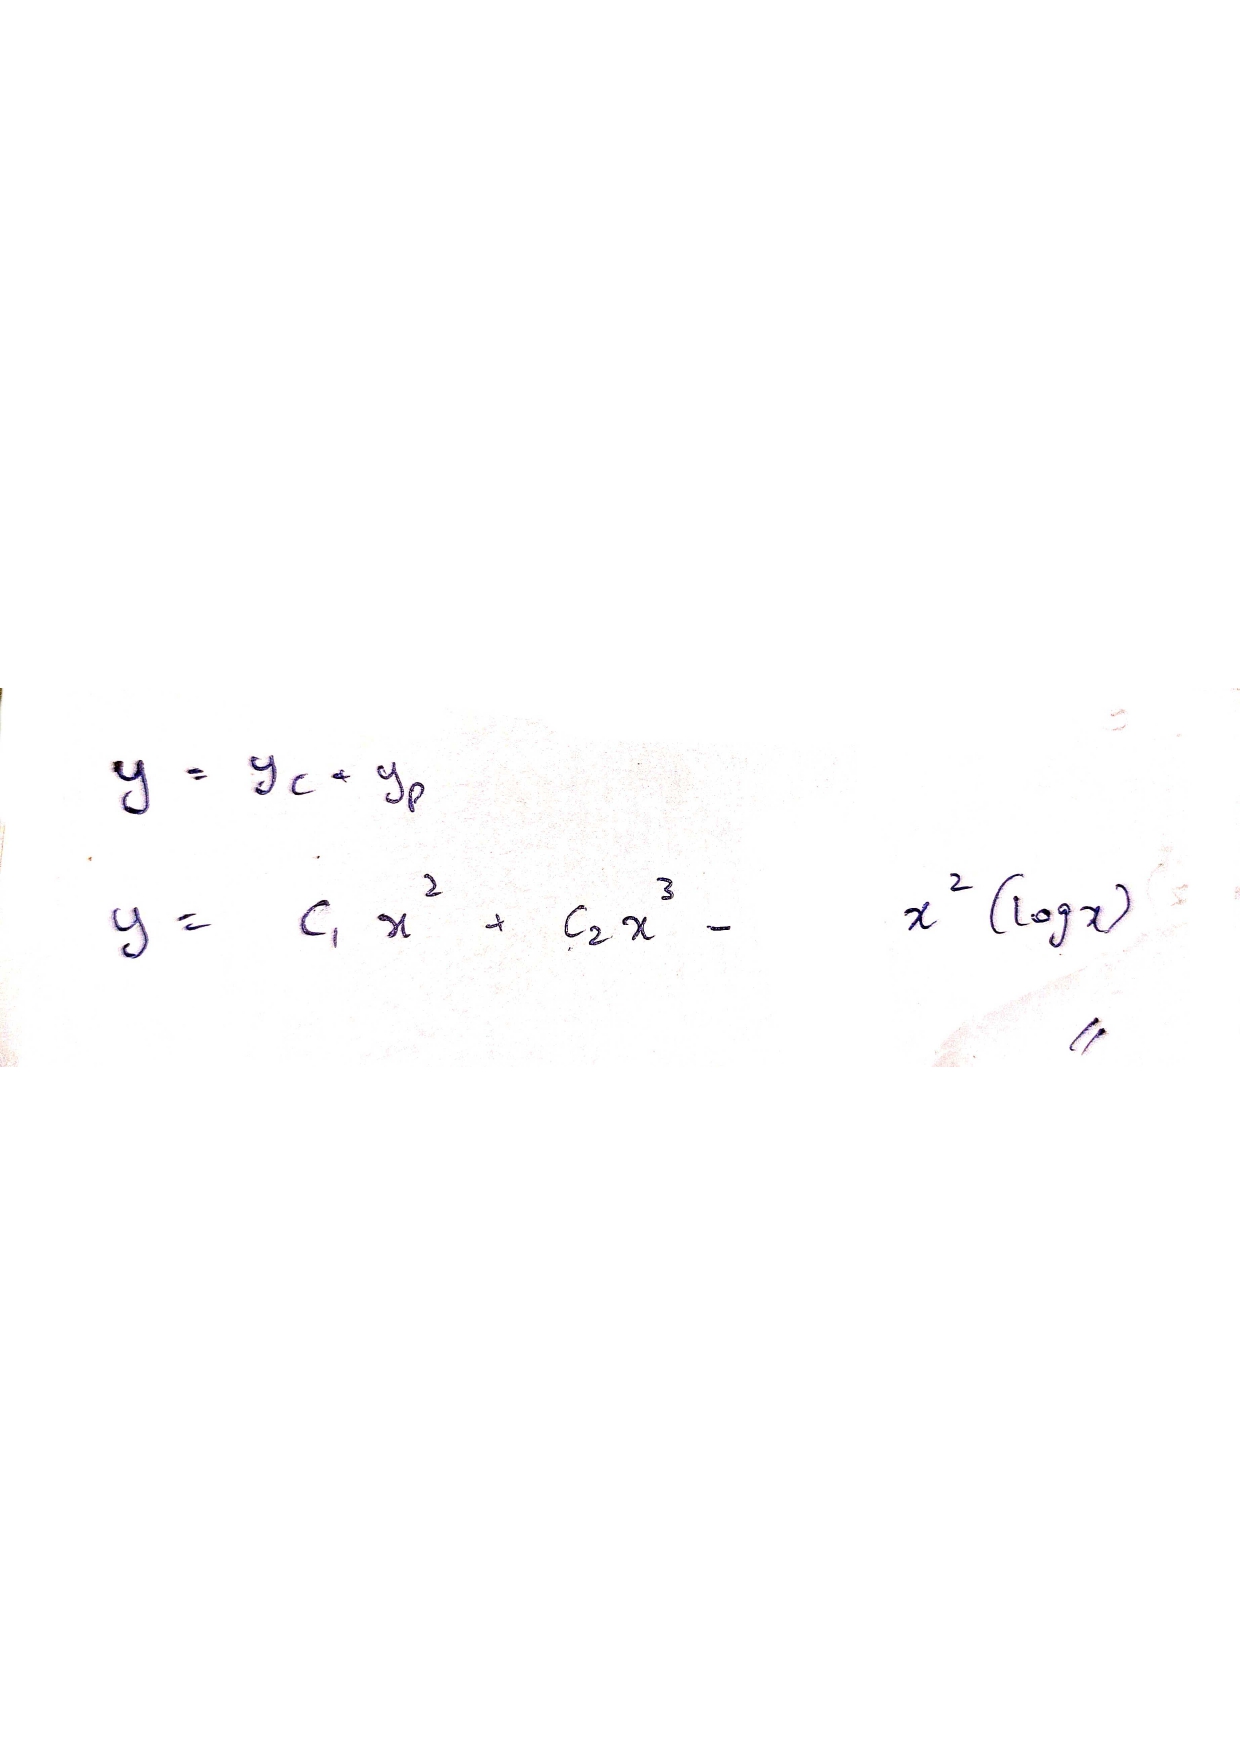 y = y_c + y_p
y = C₁ x² + C₂ x³ - x² (log x)